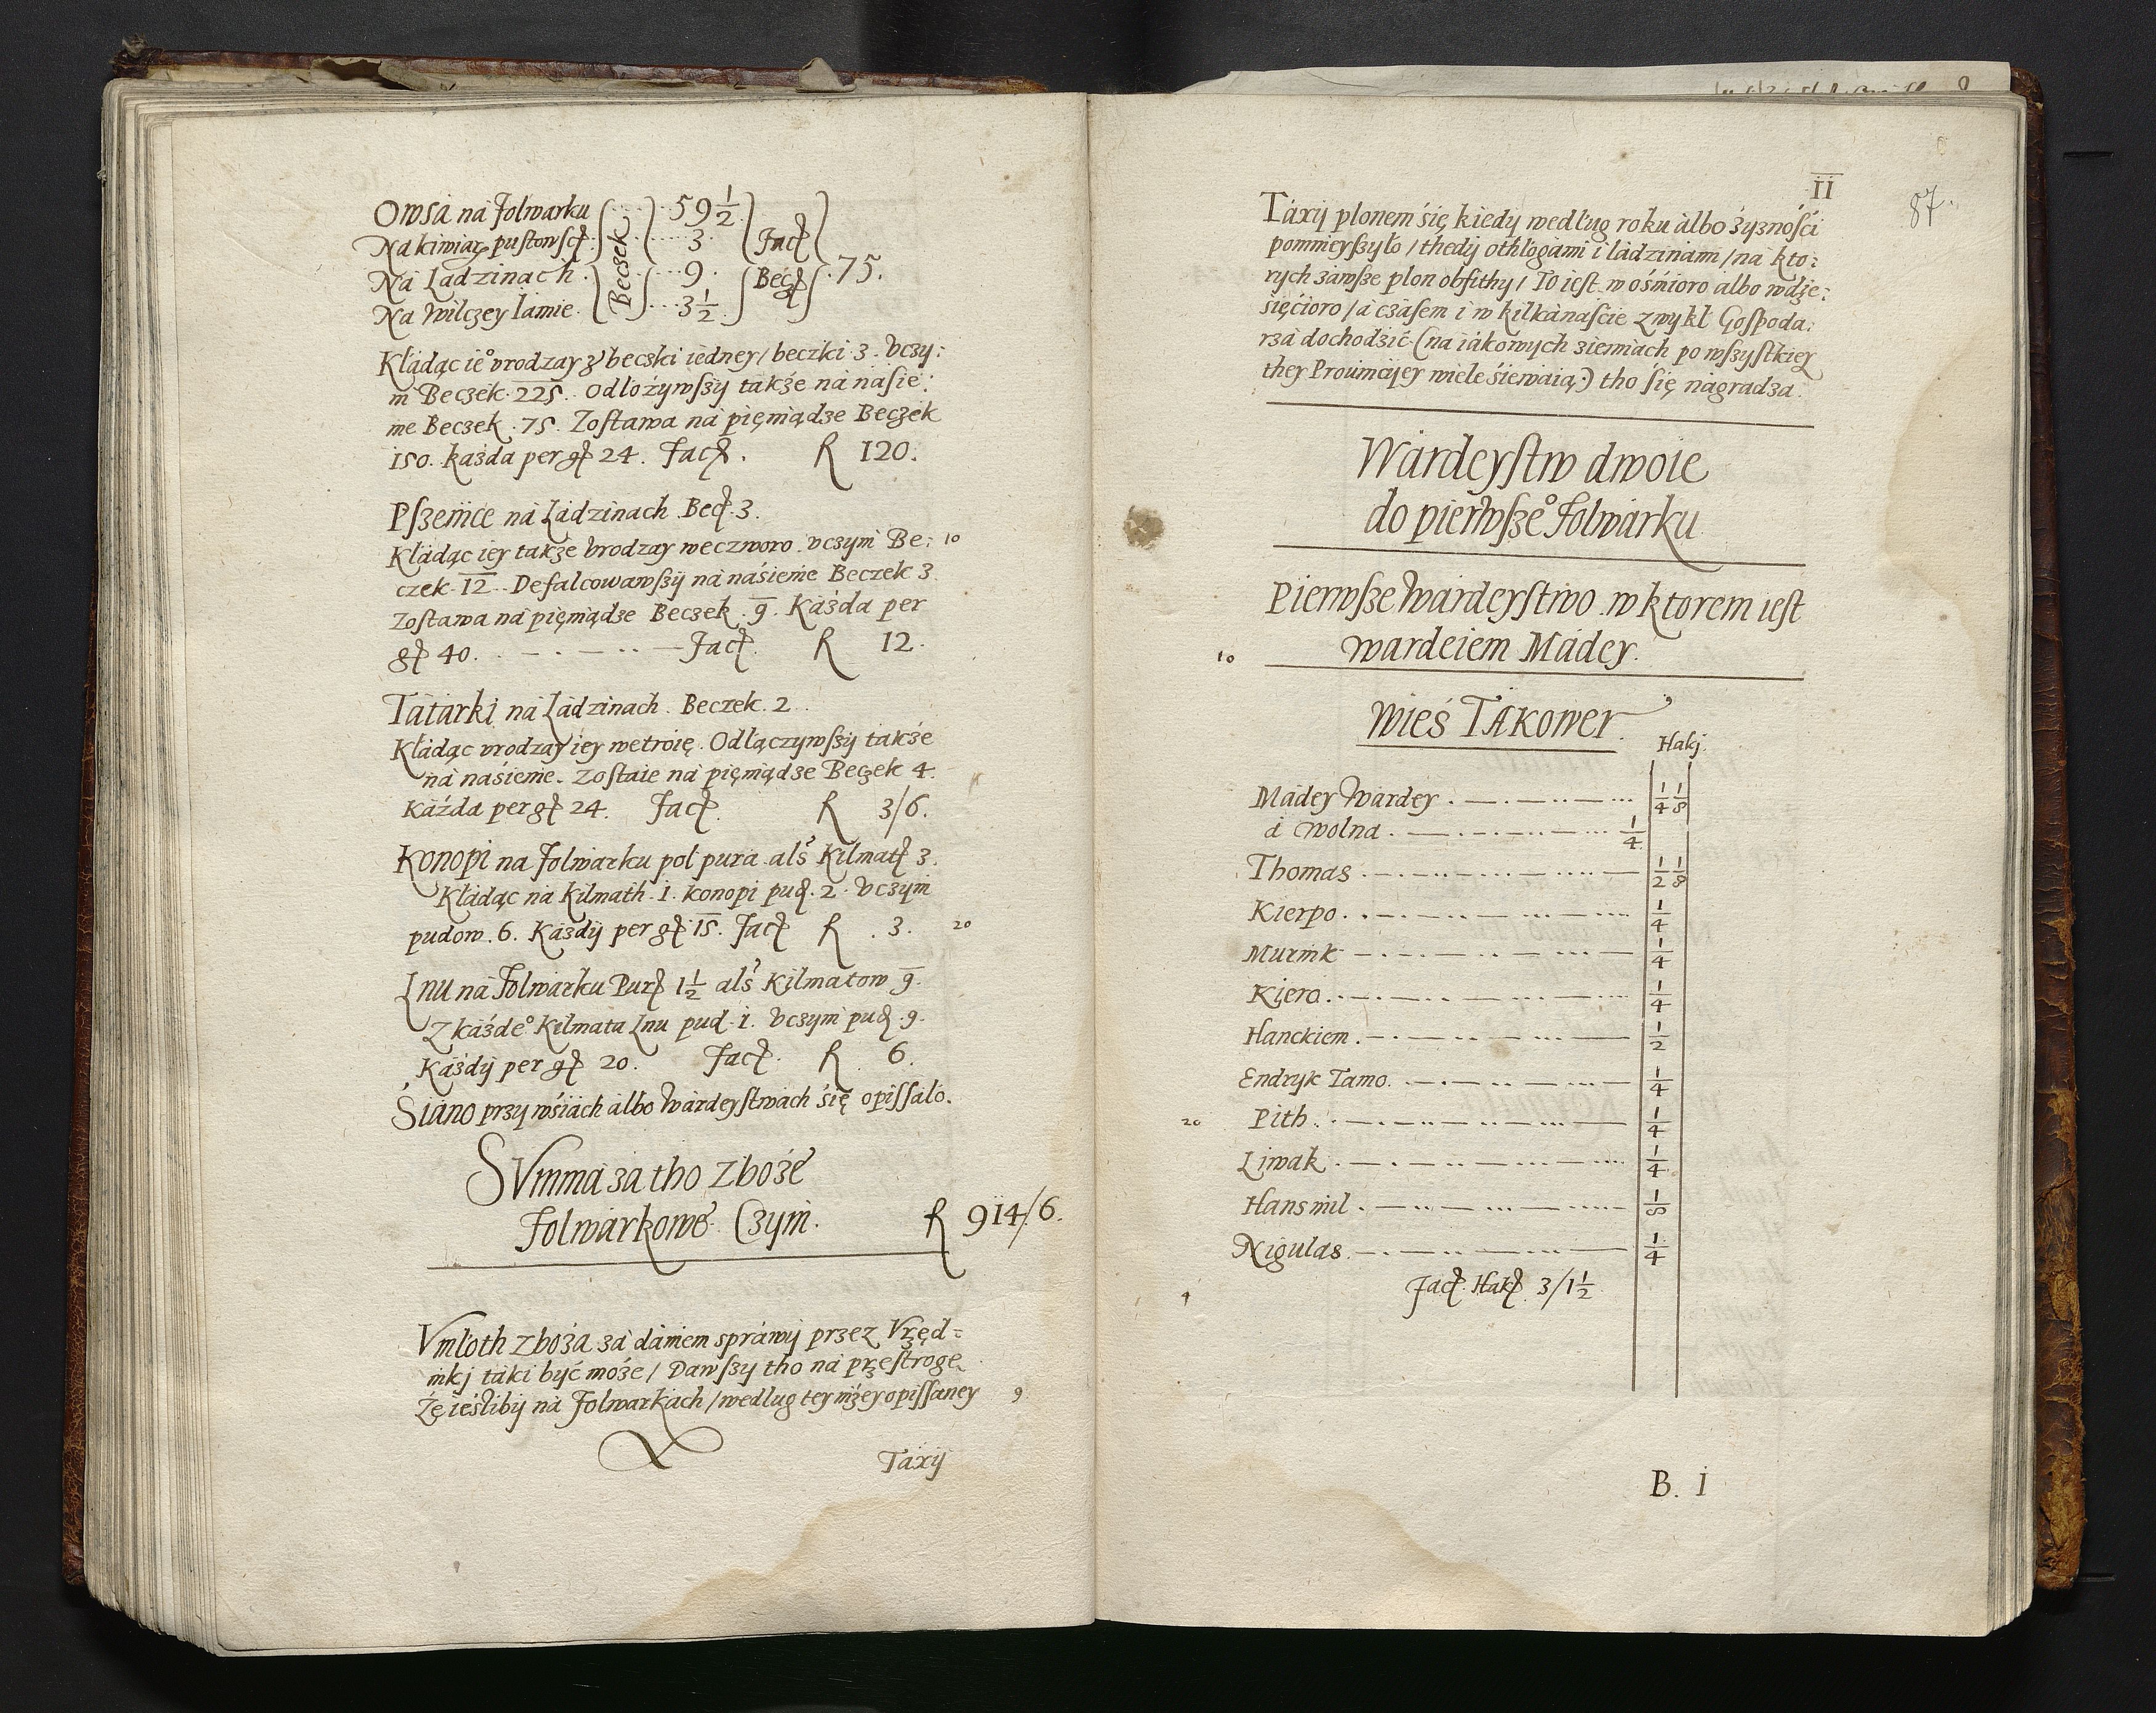 Owsa na Folwarku 59 1/2
Na kiwiaz pustowscz 3 Facz
Na Ladzinach Beczek 9 Becz 75.
Na Wilczey lamie 3 1/2
Kładąc ieº vrodzay z beczki iedney / beczki 3. vczy:
ni Beczek 225. Odlożywszy także na nasie:
nie Beczek 75. Zostawa na pieniądze Beczek
150. każda per gr 24. Facz. R 120.
Pszenice na Ladzinach Becz. 3.
Kładąc iey także vrodzay weczworo vczyni Be: 10
czek 12. Defalcowawszy na nasienie Beczek 3
Zostawa na pieniądze Beczek 9. Każda per
gr 40. Facz. R 12.
Tatarki na Ladzinach Beczek 2
Kładąc vrodzay iey wetroię. Odłączywszy także
na nasienie. Zostaie na pieniądze Beczek 4.
Każda per gr 24. Facz. R 3/6.
Konopi na Folwarku pol pura als Kilmat 3.
Kładąc na Kilmath 1. konopi pud. 2 vczyni
pudow. 6. Każdy per gr 15. Facz R 3. 20
Lnu na Folwarku Pur 1 1/2 als Kilmatow 9.
Z każdeº Kilmata Lnu pud 1. vczyni pud 9.
Każdy per gr 20. Facz. R 6.
Siano przy wsiach albo Wardeystwach się opissalo.
SVmma za tho Zboże
Folwarkowe Czyni. R 914/6.
Vmłoth zboża za daniem sprawy przez Vrzęd=
niki taki być może / Dawszy tho na przestrogę
Że iesliby na Folwarkach / według tey niżey opissaney 9
Taxy
II
87.
Taxy plonem się kiedy według roku albo żyzności
pomnieyszyło / thedy othłogami i ladzinami / na kto:
rych zawsze plon obfithy / To iest w ośmioro albo w dzie:
sięcioro / a czasem i w kilkanaście zwykł Gospoda:
rza dochodzić (na iakowych ziemiach po wszystkiey
they Prouincyey wiele siewaią:) tho się nagradza.
Wardeystw dwoie
do pierwszeº Folwarku
Pierwsze Wardeystwo w ktorem iest
10 wardeiem Madey.
Wieś TAKOWER.
Haki
Madey Wardey 1/4 1/8
a wolna 1/4
Thomas 1/2 1/8
Kierpo 1/4
Murink 1/4
Kiero 1/4
Hanckiem 1/2
Endryk Tamo 1/4
20 Pith 1/4
Liwak 1/4
Hansnil 1/8
Nigulas 1/4
4 Facz. Hak 3/1 1/2
B. I